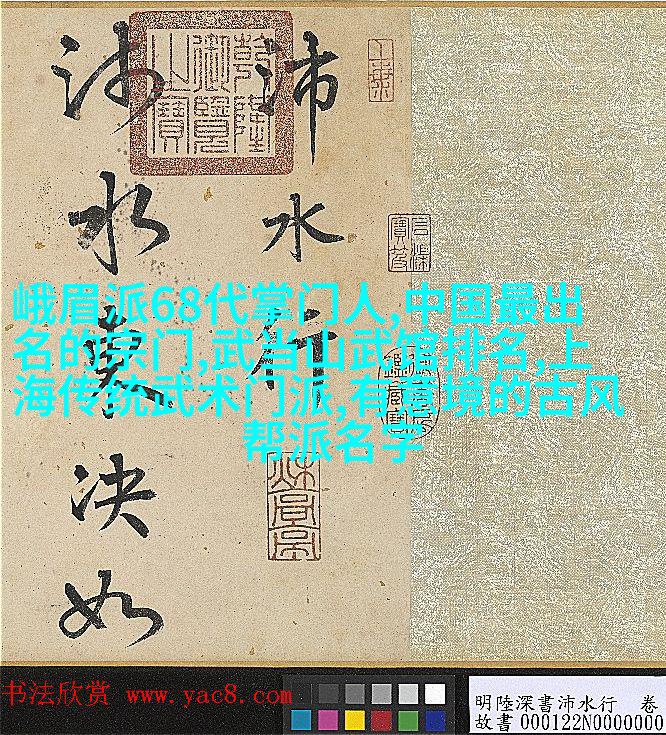 沛水行
沛水
決如
乾隆御覽之寶
石渠寶笈
峨眉派68代掌门人,中国最出
名的宗门,武当山武馆排名,上
海传统武术门派,有意境的古风
帮派名字
书法欣赏 www.yac8.com
明陸深書沛水行 卷
故書 000122N0000000